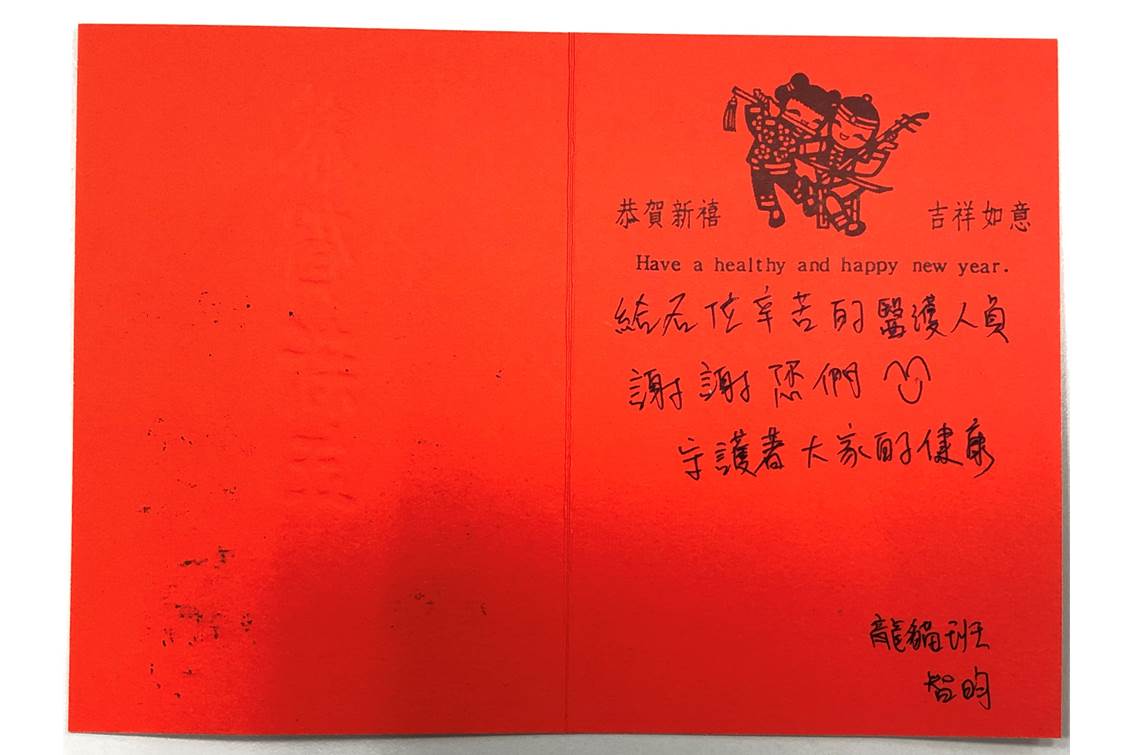 恭賀新禧 吉祥如意
Have a healthy and happy new year.
給各位辛苦的醫護人員
謝謝您們
守護著大家的健康
龍貓班
智昀